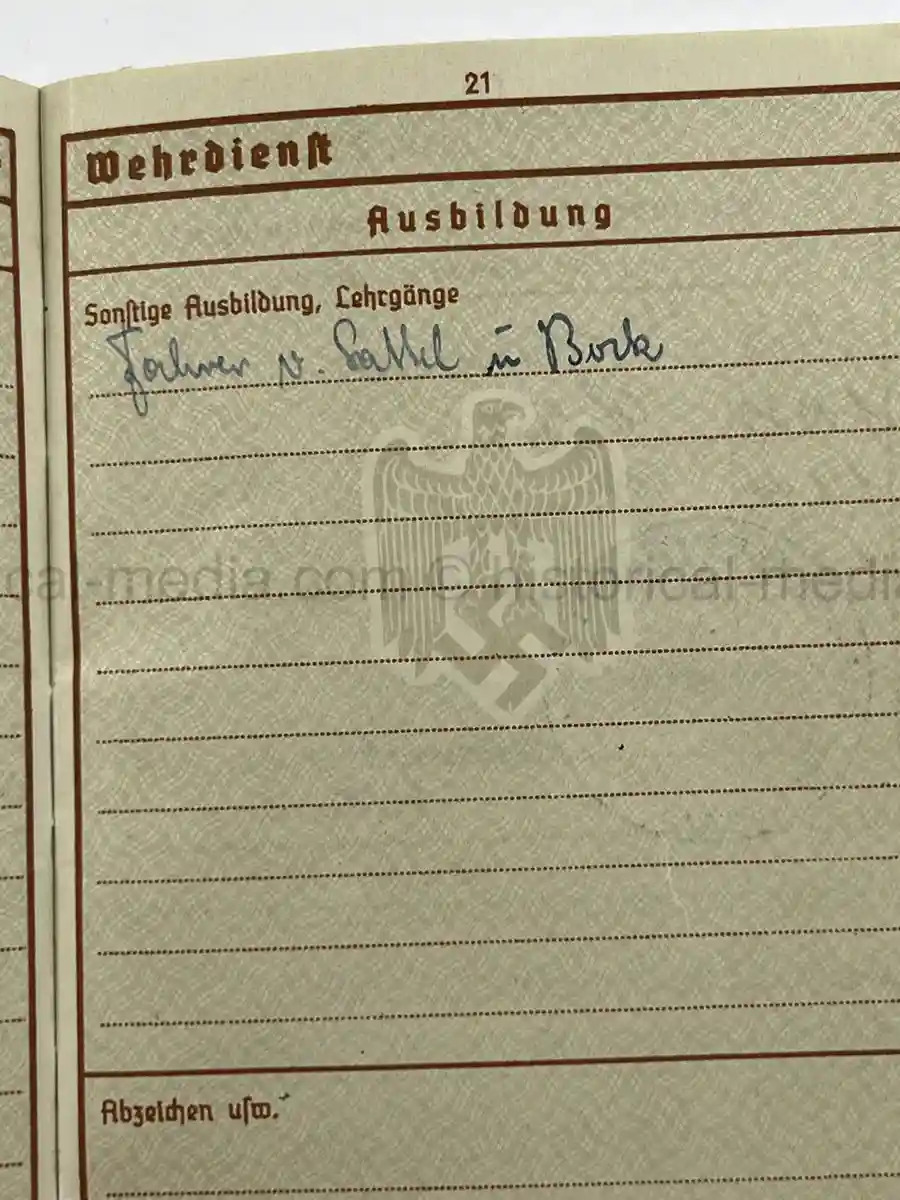 21
Wehrdienst
Ausbildung
Sonstige Ausbildung, Lehrgänge
Fahrer v. Sattel u Bock
media.com © historical-medi
Abzeichen usw.